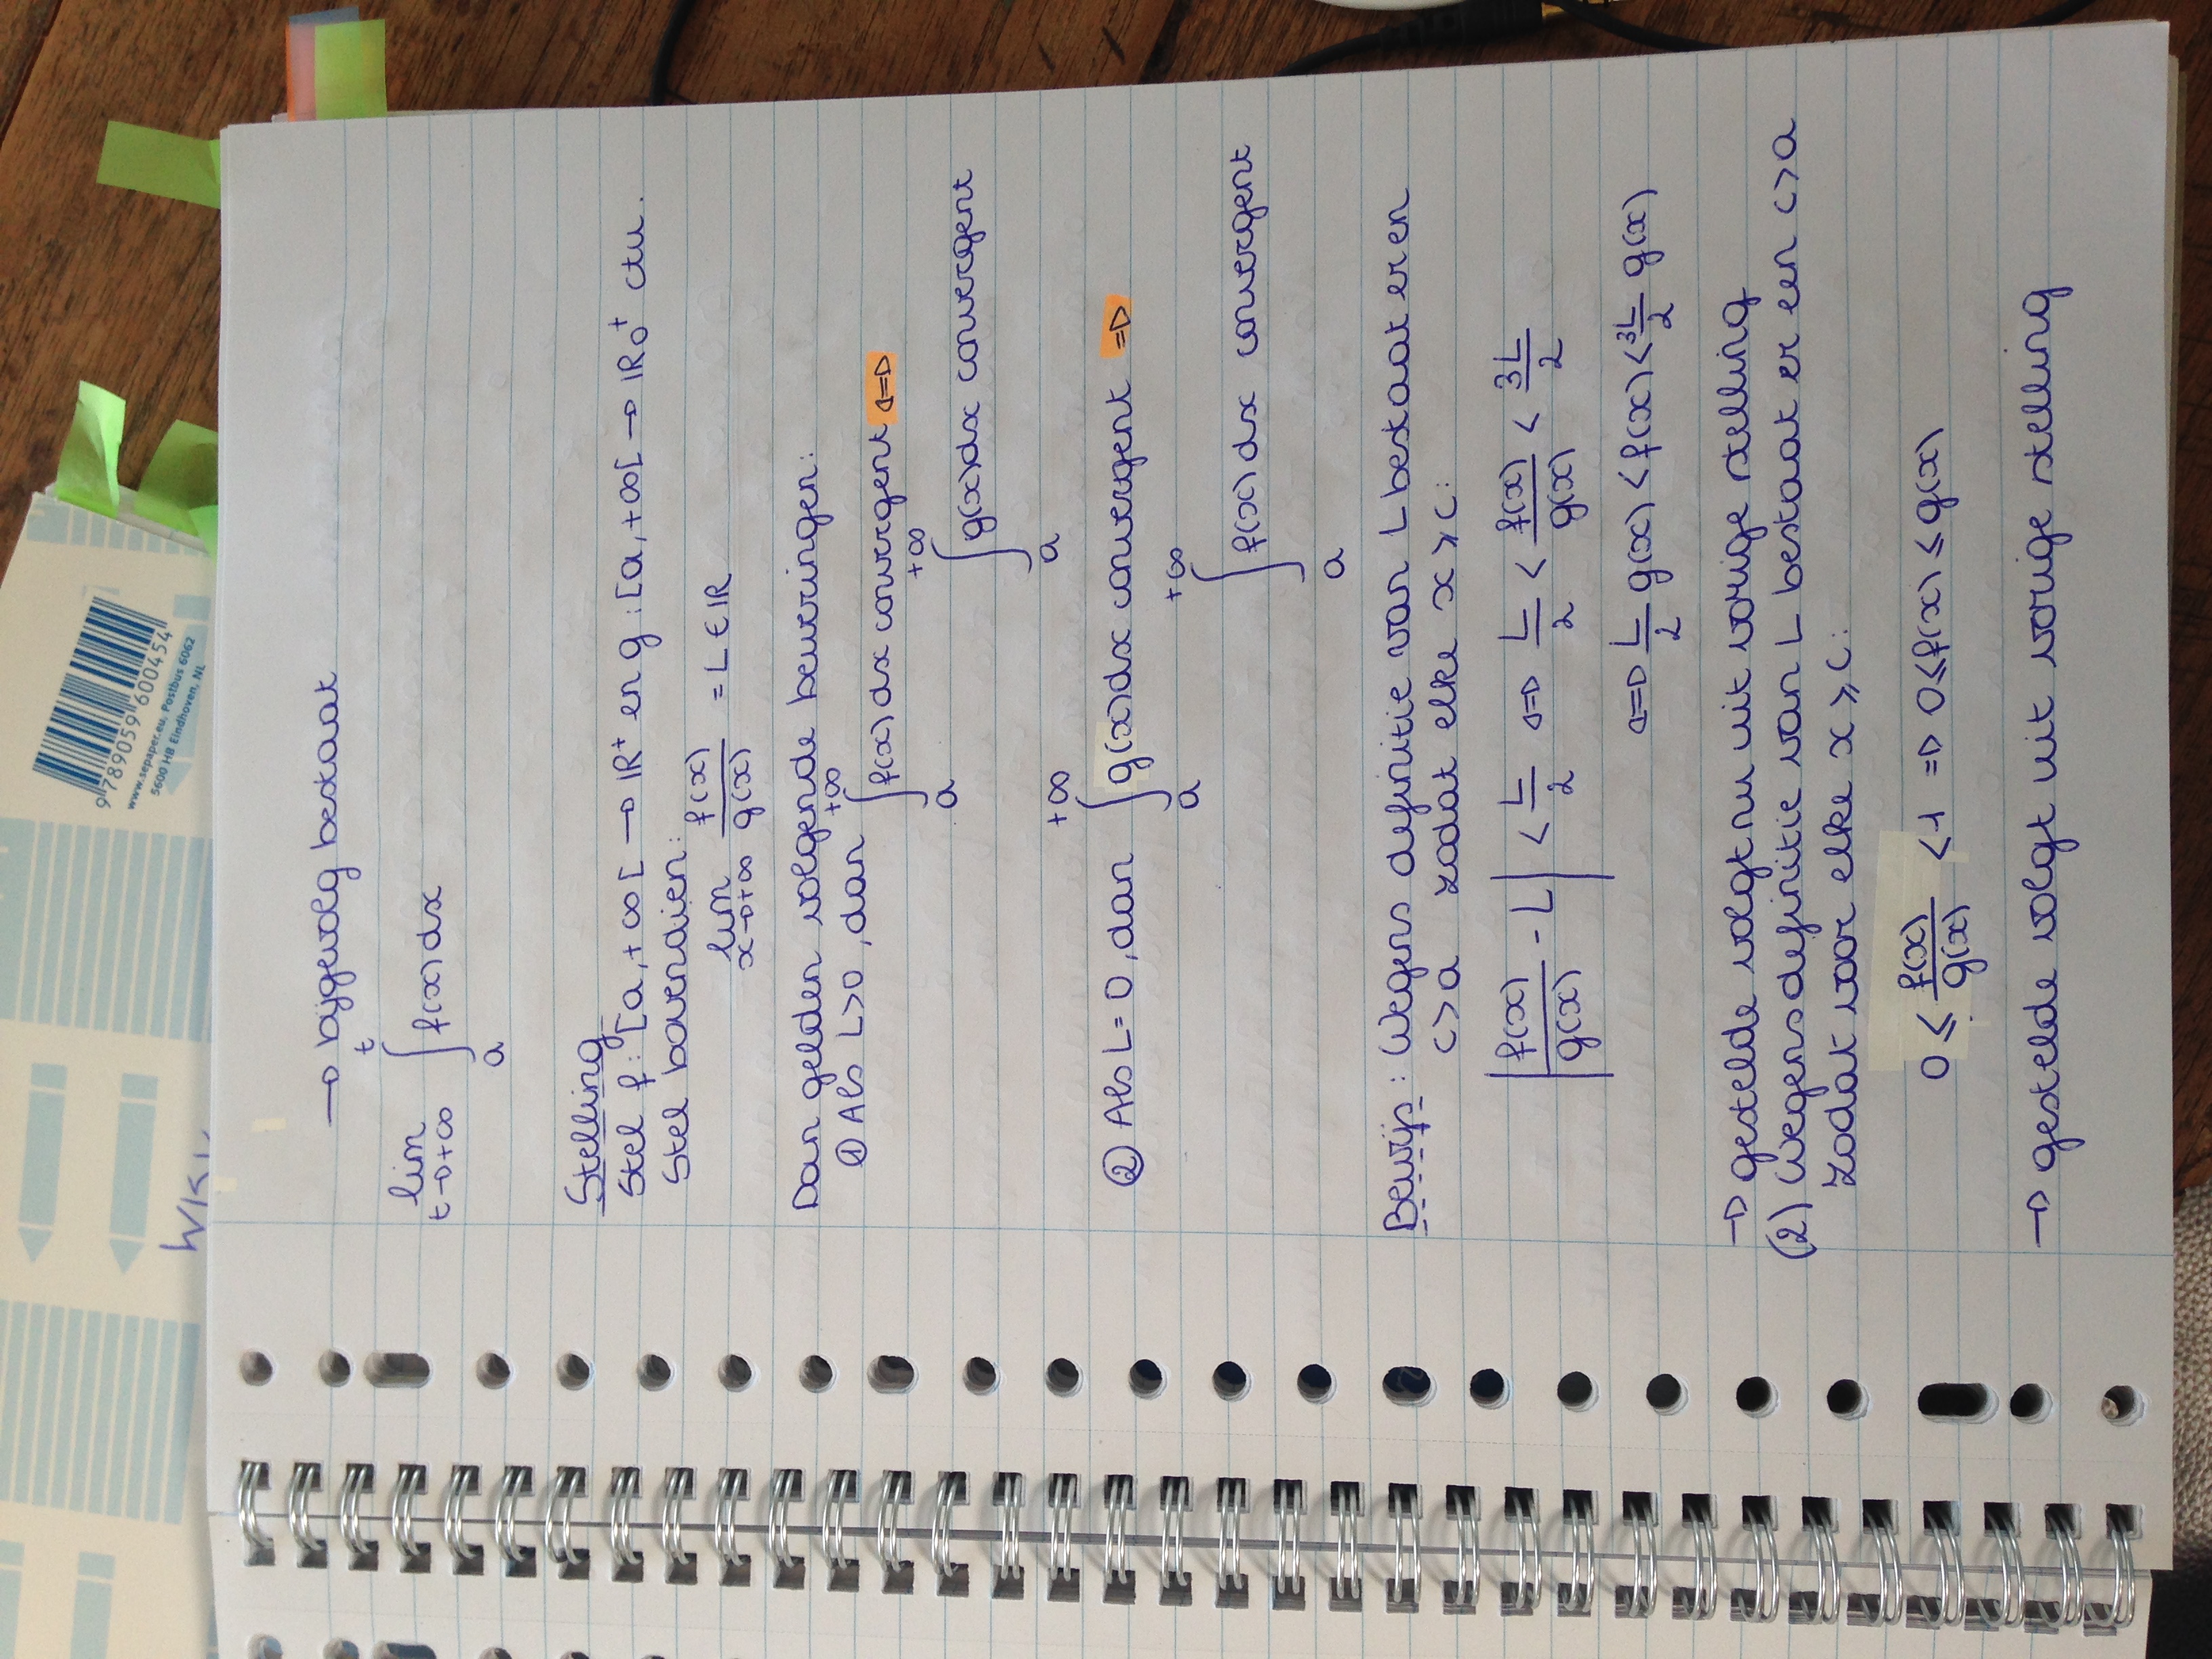 9 789059 600454
www.sepaper.eu, Postbus 6062
5600 HB Eindhoven, NL
→ bijgevolg bestaat
lim t→+∞ ∫ₐᵗ f(x) dx
Stelling
Stel f: [a,+∞[ → ℝ⁺ en g: [a,+∞[ → ℝ₀⁺ ctu.
Stel bovendien:
lim x→+∞ f(x)/g(x) = L ∈ ℝ
Dan gelden volgende beweringen:
① Als L>0, dan ∫ₐ^{+∞} f(x) dx convergent ⇔
∫ₐ^{+∞} g(x)dx convergent
② Als L=0, dan ∫ₐ^{+∞} g(x)dx convergent ⇒
∫ₐ^{+∞} f(x) dx convergent
Bewijs: Wegens definitie van L bestaat er en
c>a zodat elke x ⩾ c:
|f(x)/g(x) - L| < L/2 ⇔ L/2 < f(x)/g(x) < 3L/2
⇔ L/2 g(x) < f(x) < 3L/2 g(x)
→ gestelde volgt nu uit vorige stelling
(2) Wegens definitie van L bestaat er een c>a
zodat voor elke x ⩾ c:
0 ⩽ f(x)/g(x) < 1 ⇒ 0 ⩽ f(x) ⩽ g(x)
→ gestelde volgt uit vorige stelling